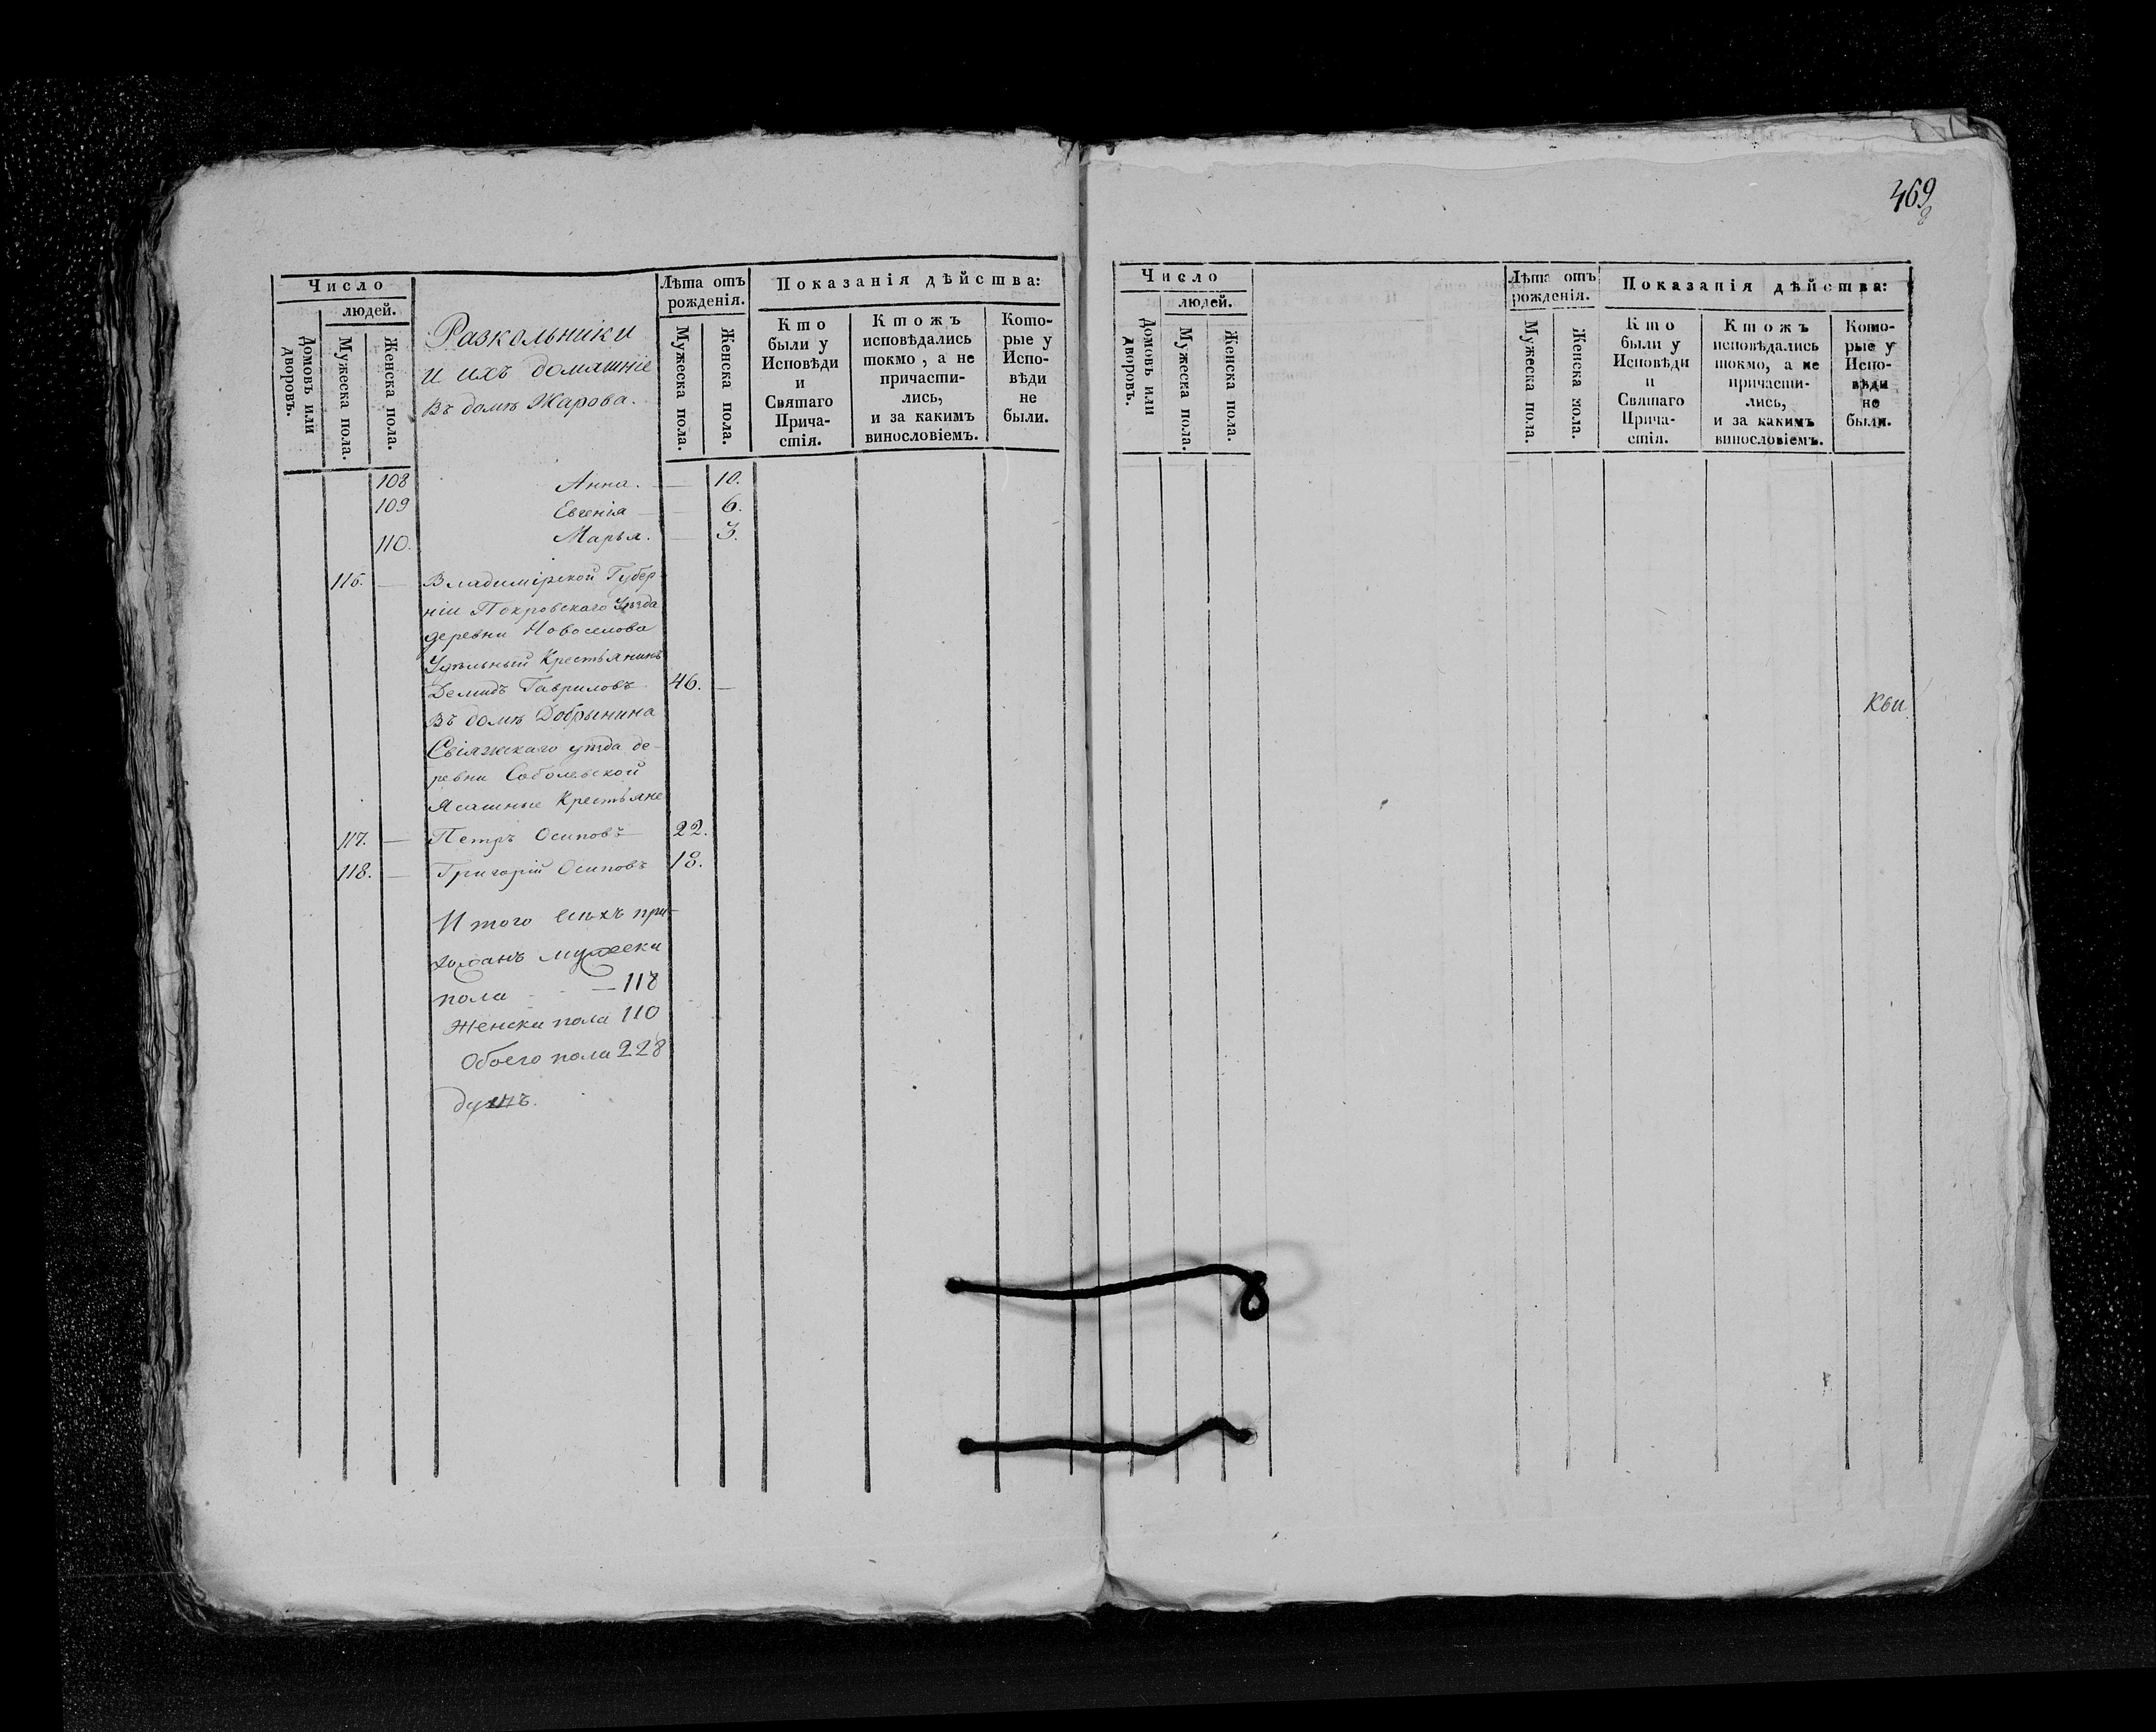 Число
людей.
Домовъ или
дворовъ.
Мужеска пола.
Женска пола.
Разкольники
и ихъ домашніе
Въ домѣ Жарова.
Лѣта отъ
рожденія.
Мужеска пола.
Женска пола.
Показанія дѣйства:
Кто
были у
Исповѣди
и
Святаго
Прича-
стія.
Ктожъ
исповѣдались
токмо, а не
причасти-
лись,
и за какимъ
винословіемъ.
Кото-
рые у
Испо-
вѣди
не
были.
108 Анна. — 10.
109 Евгенія — 6.
110. Марья. — 3.
116. — Владимірской Губер
ніи Покровскаго Уѣзда
деревни Новоселова
Удѣльный Крестьянинъ
Демидъ Гавриловъ 46. —
Въ домѣ Добрынина
Свіяжскаго уѣзда де-
ревни Соболевской
Ясашные Крестьяне
117. — Петръ Осиповъ 22.
118. — Григорій Осиповъ 18.
Итого всѣхъ при-
хожанъ мужеска
пола — 118
Женска пола 110
Обоего пола 228
душъ.
469
Число
людей.
Домовъ или
дворовъ.
Мужеска пола.
Женска пола.
Лѣта отъ
рожденія.
Мужеска пола.
Женска пола.
Показанія дѣйства:
Кто
были у
Исповѣди
и
Святаго
Прича-
стія.
Ктожъ
исповѣдались
токмо, а не
причасти-
лись,
и за какимъ
винословіемъ.
Кото-
рые у
Испо-
вѣди
не
были.